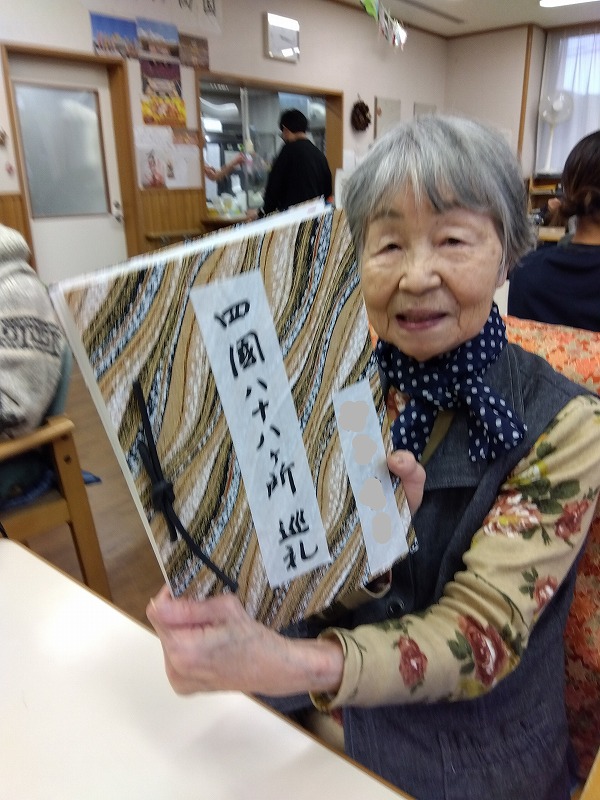 四國八十八ヶ所 巡礼